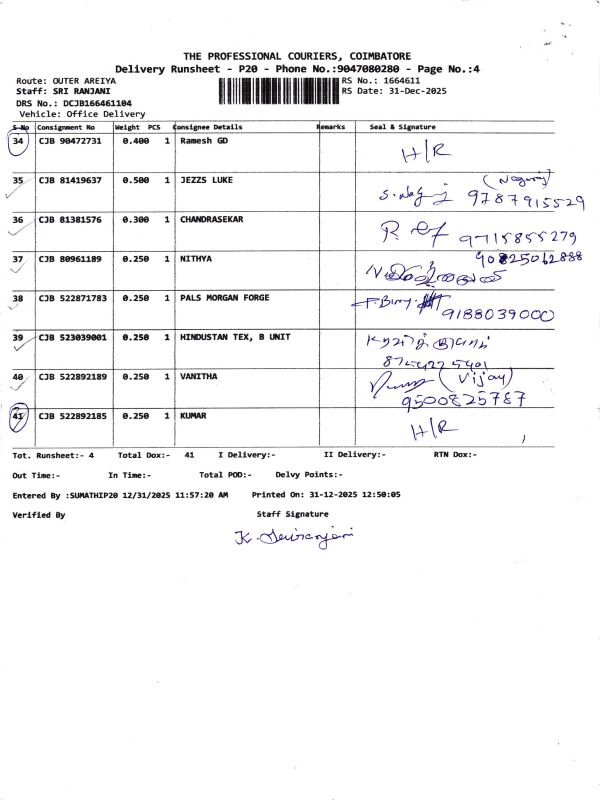 THE PROFESSIONAL COURIERS, COIMBATORE
Delivery Runsheet - P20 - Phone No.:9047080280 - Page No.:4
Route: OUTER AREIYA RS No.: 1664611
Staff: SRI RANJANI RS Date: 31-Dec-2025
DRS No.: DCJB166461104
Vehicle: Office Delivery
S No Consignment No Weight PCS Consignee Details Remarks Seal & Signature
34 CJB 90472731 0.400 1 Ramesh GD H/R
35 CJB 81419637 0.500 1 JEZZS LUKE 9787915529
36 CJB 81381576 0.300 1 CHANDRASEKAR 9715855279
37 CJB 80961189 0.250 1 NITHYA
38 CJB 522871783 0.250 1 PALS MORGAN FORGE 9188039000
39 CJB 523039001 0.250 1 HINDUSTAN TEX, B UNIT
40 CJB 522892189 0.250 1 VANITHA (Vijay)
9500825787
41 CJB 522892185 0.250 1 KUMAR H/R
Tot. Runsheet:- 4 Total Dox:- 41 I Delivery:- II Delivery:- RTN Dox:-
Out Time:- In Time:- Total POD:- Delvy Points:-
Entered By :SUMATHIP20 12/31/2025 11:57:20 AM Printed On: 31-12-2025 12:50:05
Verified By Staff Signature